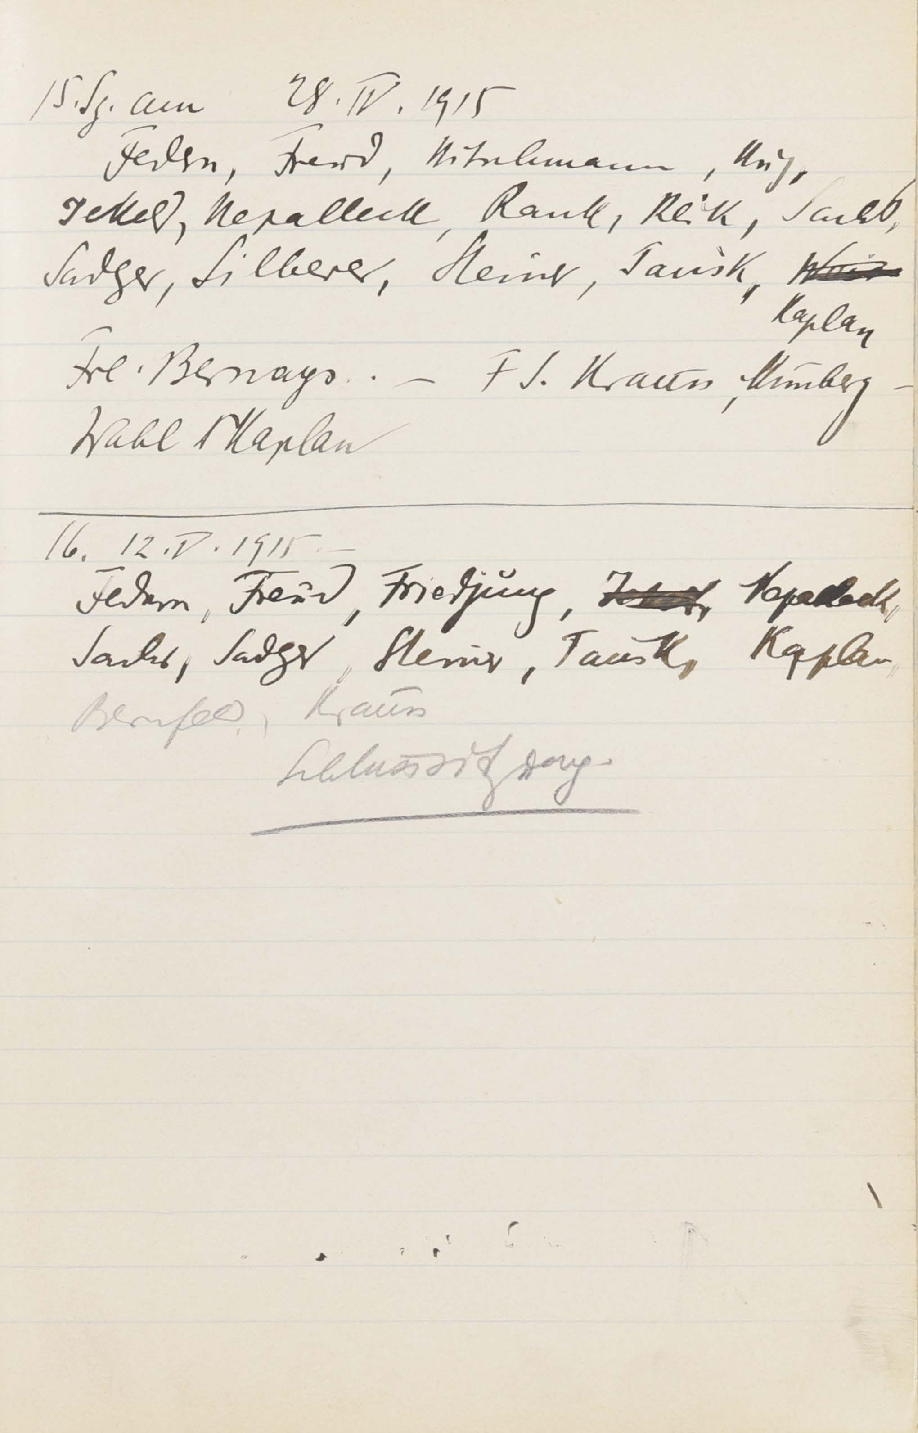 15. Sg. am 28. IV. 1915
Federn, Freud, Hitschmann, Hug,
Jekels, Nepalleck, Rank, Reik, Sachs,
Sadger, Silberer, Steiner, Tausk, Weiss
Kaplan
Frl. Bernays. – F S. Krauss, Nunberg –
Wahl Kaplan
16. 12. V. 1915 –
Federn, Freud, Friedjung, Jekels, Nepalleck,
Sachs, Sadger, Steiner, Tausk, Kaplan,
Bernfeld, Krauss
Schlusssitzung.